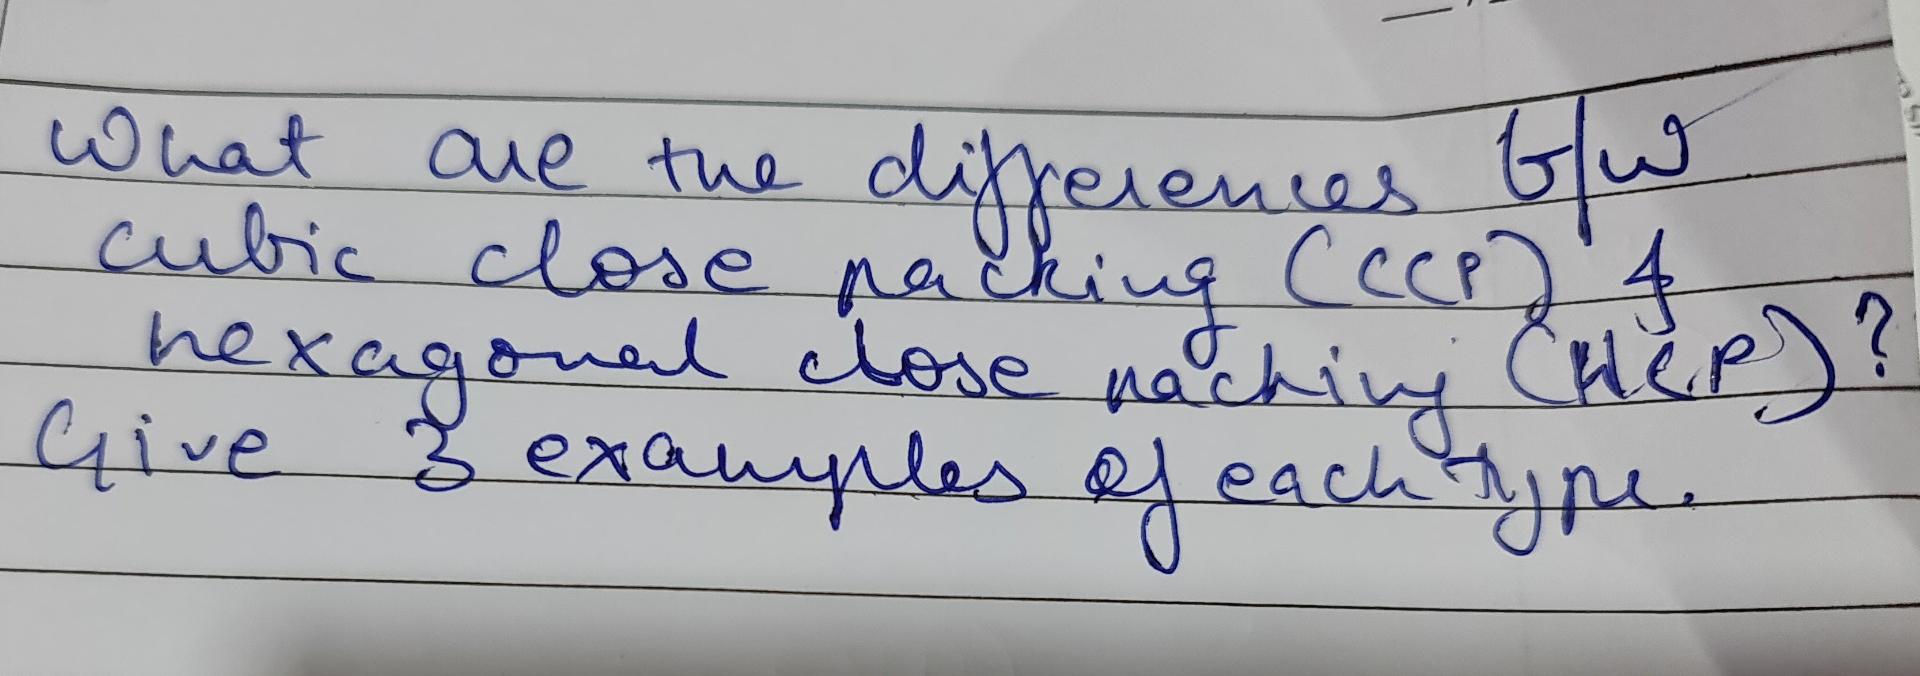 What are the differences b/w
cubic close packing (CCP) &
hexagonal close packing (HCP)?
Give 3 examples of each type.